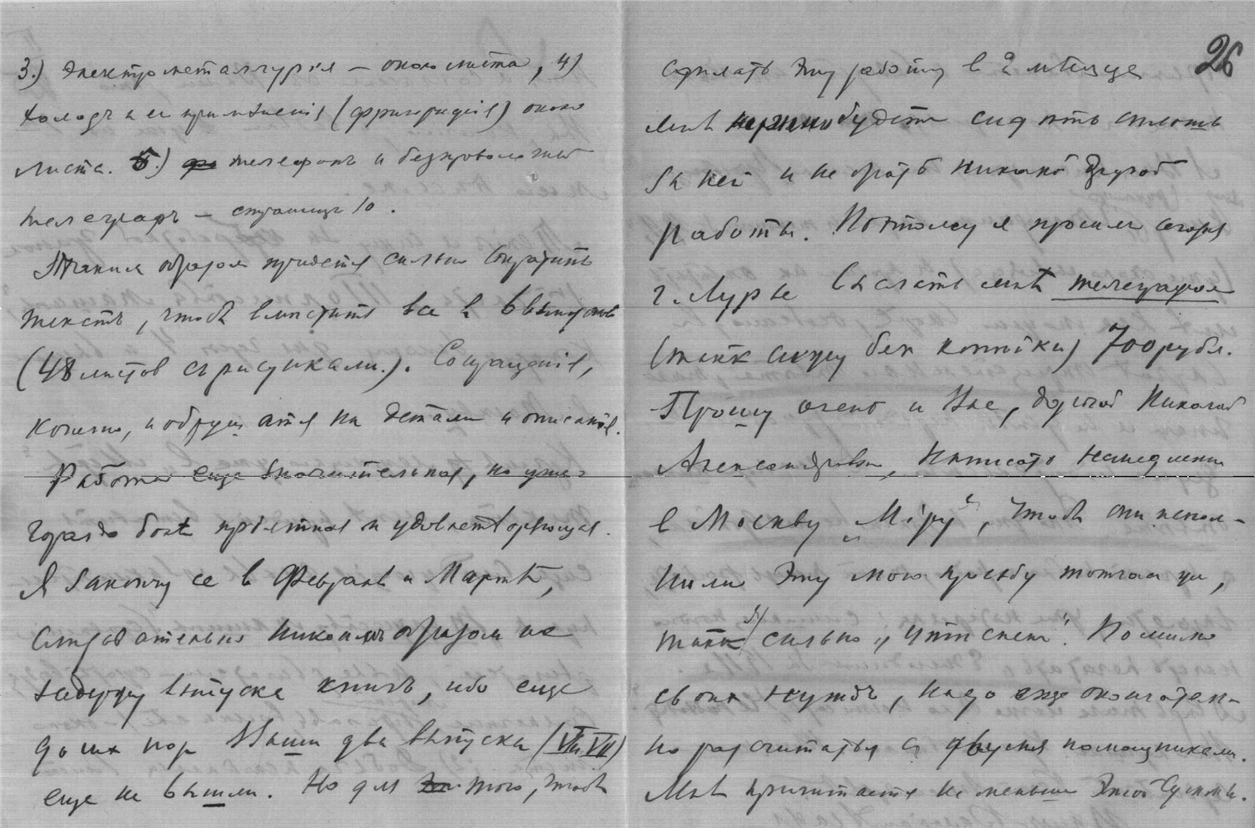 3.) Электрометаллургия – около листа, 4)
холодъ и ее примѣненія (фригорадіs) около
листа. 5.) телефонъ и безпроволочный
телеграфъ – страницъ 10.
Такимъ образом придется сильно сократить
текстъ, чтобъ вмѣстить все в 6 выпусков
(48 листов съ рисунками.). Сокращенія,
конечно, обрушатся на детали и описанія.
Работа еще значительная, но уже
гораздо болѣе пріятная и удовлетворяющая.
Я закончу ее в Февралѣ и Мартѣ,
слѣдовательно никоимъ образом не
задержу выпуска книгъ, ибо еще
до сих пор Ваши два выпуска (VI и VII)
еще не вышли. Но для того, чтобъ
26
сдѣлать эту работу в 2 мѣсяца
мнѣ нужно будетъ сидѣть вплоть
за ней и не брать никакой другой
работы. Поэтому я просил сегодня
г. Лурье выслать мнѣ телеграфом
(такъ сижу без копѣйки) 700 рубл.
Прошу очень и Вас, дорогой Николай
Александрович, написать немедленно
в Москву „Міру“, чтобъ они испол-
нили эту мою просьбу тотчас же,
такъ я сильно „утѣснен“. Помимо
своих нуждъ, надо еще окончатель-
но рассчитаться съ двумя помощниками.
Мнѣ причитается не меньше этой суммы.